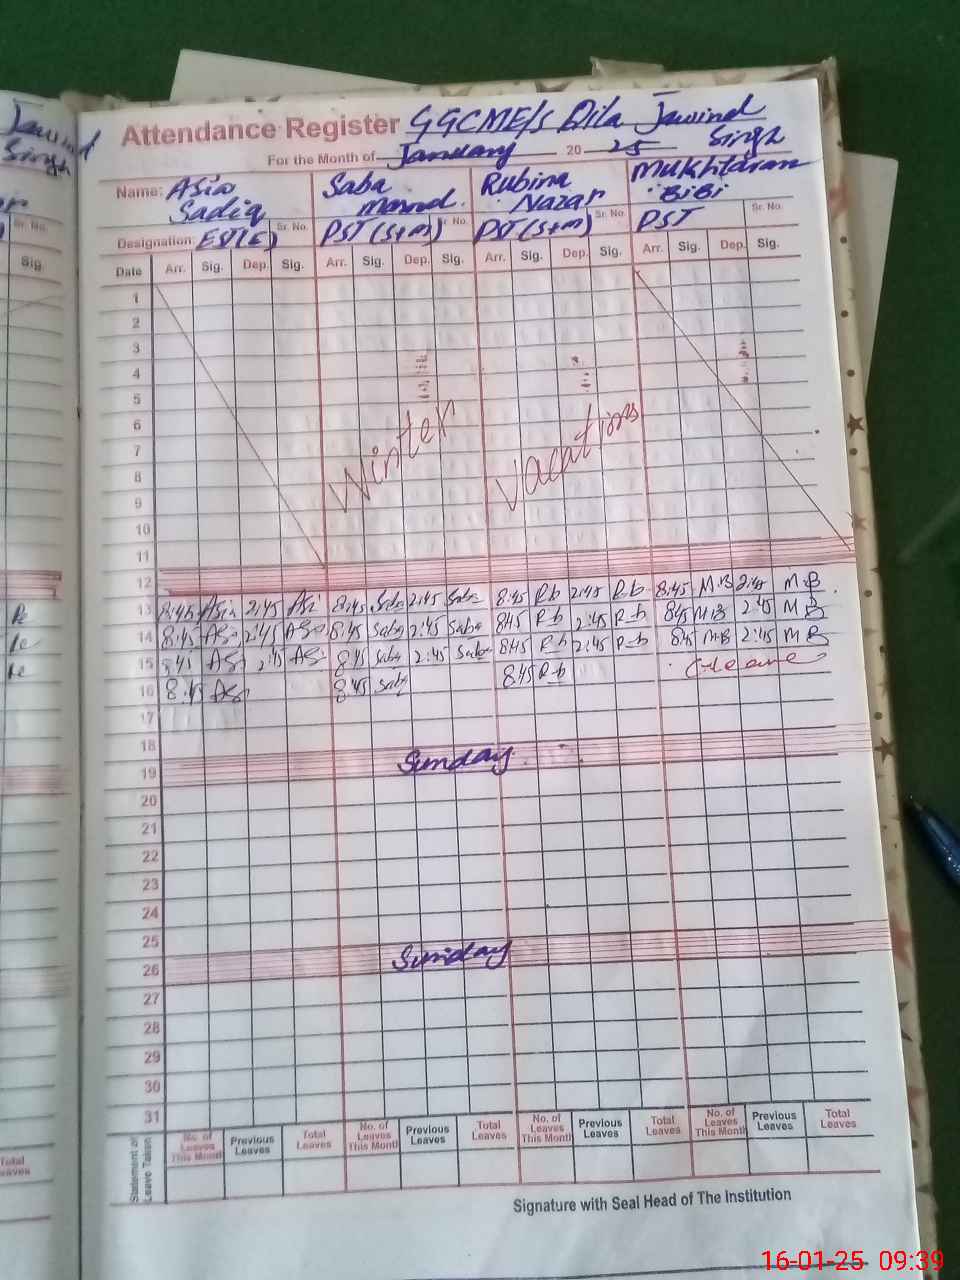 Attendance Register GGCME/s Qila Jawind Singh
For the Month of January 20 25
Name: Asia Sadiq Saba Rubina Nazar Mukhtaran BiBi
Designation: EST(E) Sr. No. PST (S+M) Sr. No. PST (S+M) Sr. No. PST Sr. No.
Date Arr. Sig. Dep. Sig. Arr. Sig. Dep. Sig. Arr. Sig. Dep. Sig. Arr. Sig. Dep. Sig.
1
2
3
4
5
6
7
8
9
10
11
Winter Vacations
12
13 8:45 Asia 2:45 Asi 8:45 Saba 2:45 Saba 8:45 R-b 2:45 R-b 8:45 M.B 2:45 M.B
14 8:45 Asi 2:45 Asi 8:45 Saba 2:45 Saba 8:45 R-b 2:45 R-b 8:45 MB 2:45 MB
15 8:45 Asi 2:45 Asi 8:45 Saba 2:45 Saba 8:45 R-b 2:45 R-b 8:45 MB 2:45 MB
16 8:45 Asi 8:45 Saba 8:45 R-b leave
17
18
19 Sunday
20
21
22
23
24
25
26 Sunday
27
28
29
30
31
Statement of Leave Taken No. of Leaves This Month Previous Leaves Total Leaves No. of Leaves This Month Previous Leaves Total Leaves No. of Leaves This Month Previous Leaves Total Leaves No. of Leaves This Month Previous Leaves Total Leaves
Signature with Seal Head of The Institution
16-01-25 09:39